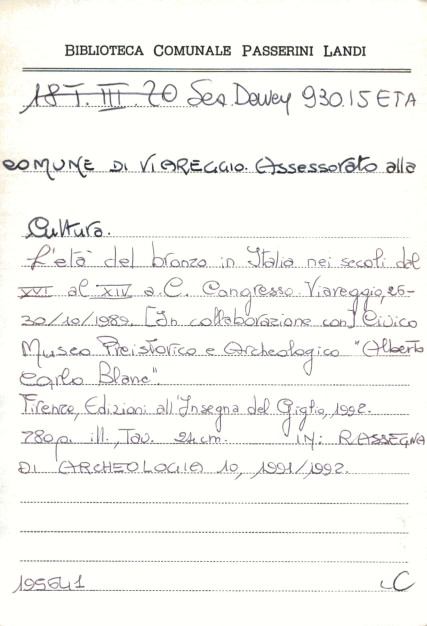 BIBLIOTECA COMUNALE PASSERINI LANDI
18T. III. 20 Sez. Dewey 930.15 ETA
COMUNE DI VIAREGGIO. Assessorato alla
Cultura.
L'età del bronzo in Italia nei secoli dal
XVI al XIV a.C. Congresso Viareggio, 26-
30/10/1989. [In collaborazione con] Civico
Museo Preistorico e Archeologico "Alberto
Carlo Blanc".
Firenze, Edizioni all'Insegna del Giglio, 1992.
780p. ill., Tav. 24 cm. IN: RASSEGNA
DI ARCHEOLOGIA 10, 1991/1992.
195641 C